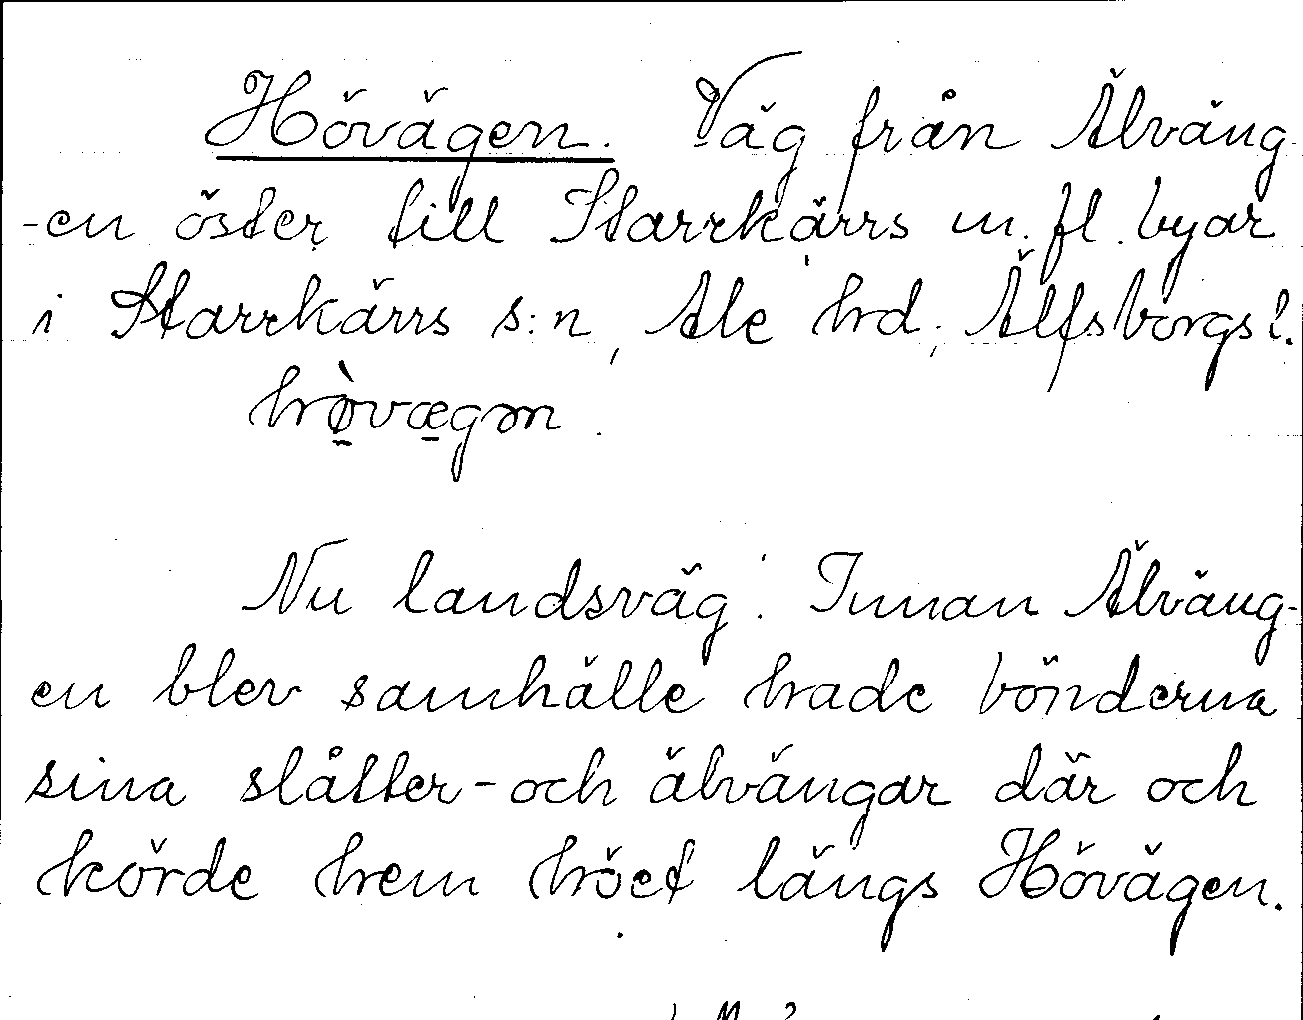 Hövägen. Väg från Älväng-
-en öster till Starrkärrs m. fl. byar
i Starrkärrs s:n, Ale hrd, Älfsborgs l.
hø̀vægən.
Nu landsväg. Innan Älväng-
en blev samhälle hade bönderna
sina slåtter- och älvängar där och
körde hem höet längs Hövägen.